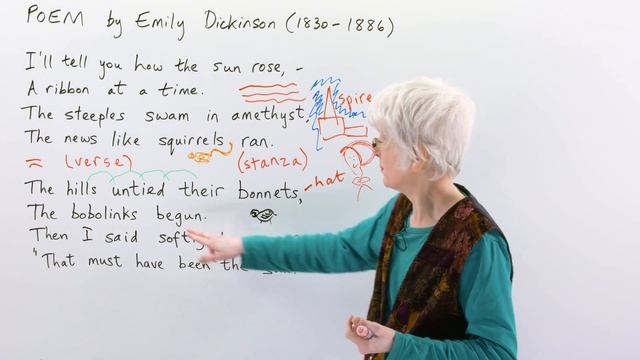 POEM by Emily Dickinson (1830-1886)
I'll tell you how the sun rose, -
A ribbon at a time.
The steeples swam in amethyst,
spire
The news like squirrels ran.
≈ (verse) (stanza)
The hills untied their bonnets, -hat
The bobolinks begun.
Then I said softly
"That must have been the